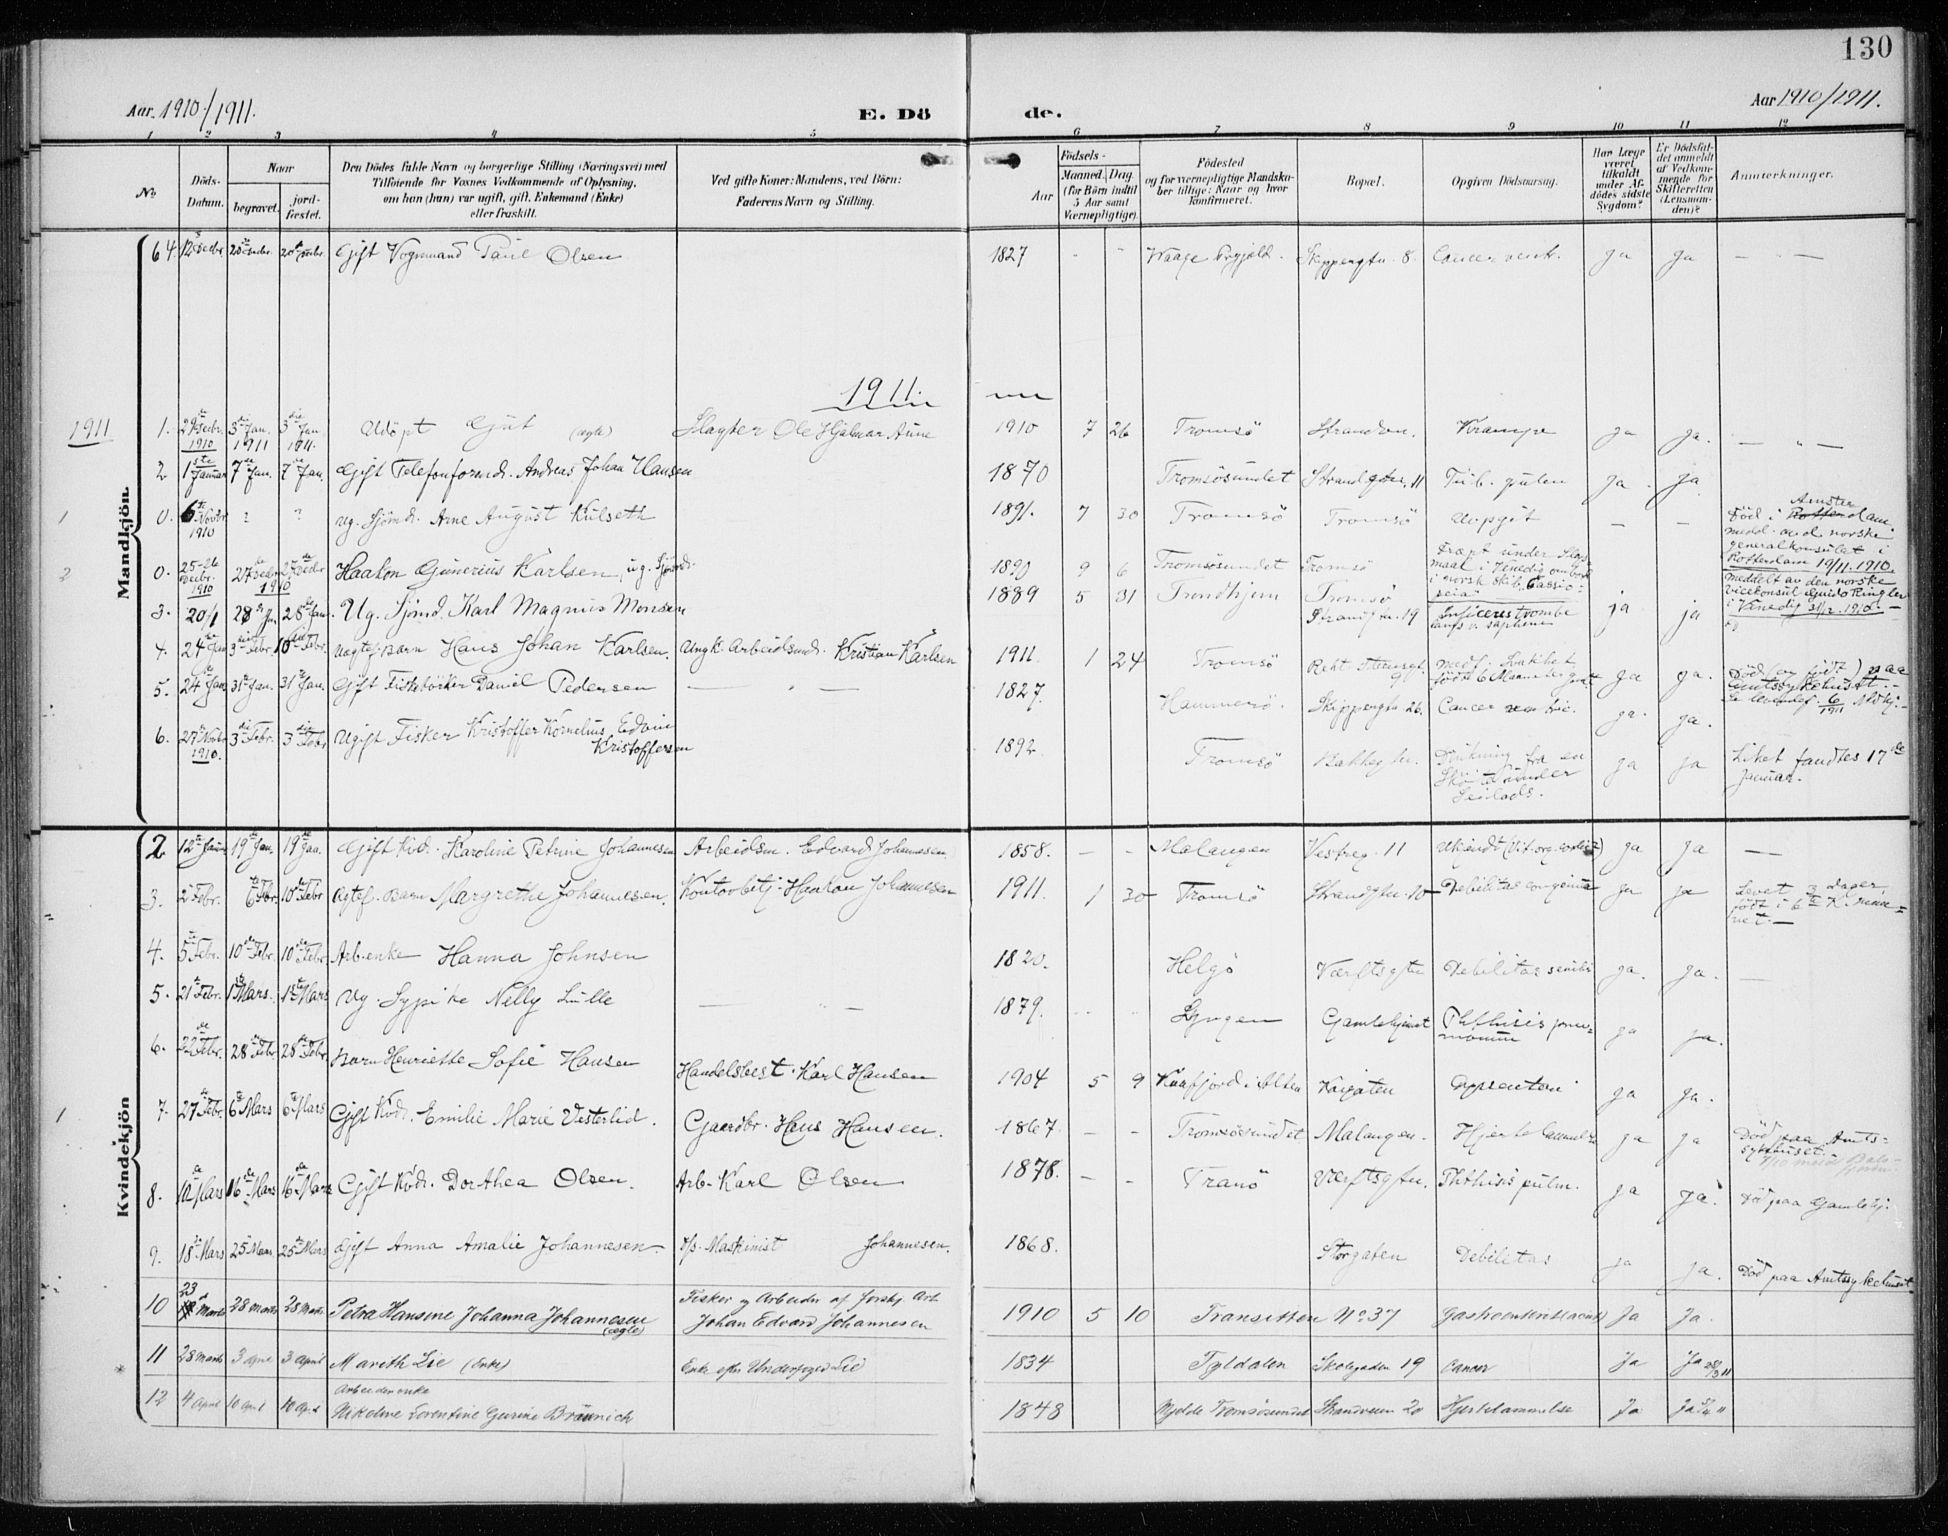 130
Aar 1910/1911.
E. Döde.
Aar 1910/1911.
1 2 3 4 5 6 7 8 9 10 11 12
No
Döds-Datum.
Naar
begravet.
jord-fæstet.
Den Dödes fulde Navn og borgerlige Stilling (Næringsvei) med
Tilföiende for Voxnes Vedkommende af Oplysning,
om han (hun) var ugift, gift, Enkemand (Enke)
eller fraskilt.
Ved gifte Koner: Mandens, ved Börn:
Faderens Navn og Stilling.
Födsels-
Aar
Maaned. Dag.
(for Börn indtil
5 Aar samt
Værnepligtige)
Födested
og for værnepligtige Mandska-
ber tillige: Naar og hvor
konfirmeret.
Bopæl.
Opgiven Dödsaarsag.
Har Læge
været
tilkaldt
under Af-
dödes sidste
Sygdom?
Er Dödsfal-
det anmeldt
af Vedkom-
mende for
Skifteretten
(Lensman-
den)?
Anmerkninger.
Mandkjön.
64. 12 Decbr. 20 Decbr. 20 Decbr. Gift Vognmand Paul Olsen 1827 Skippergtn. 8. Cancer ventr. Ja Ja
1911
1911.
1. 29 Decbr. 1910 3 Jan. 1911 3 Jan. 1911. Udöpt Gut (ægte) Slagter Ole Hjalmar Aune 1910 7 26 Tromsö Strandvn. Krampe Ja Ja.
2 1ste Januar 7 Jan. 7 Jan. Gift Telefonformd. Andreas Johan Hansen 1870 Tromsösundet Strandgtn. 11 Tub. pulm Ja. Ja
1 0. 6 Novbr 1910 ? ? Ug. Sjömd. Arne August Kulseth 1891. 7 30 Tromsö Tromsö Uopgit — — Död i Amsterdam.
medd. ved norske
generalkonsulat i
Rotterdam 19/11.1910.
2 0. 25-26 Decbr. 1910 27 Decbr 1910 27 Decbr Haakon Gunerius Karlsen, ug. Sjömd. 1890 9 6 Tromsösundet Tromsö Dræpt under Slags
maal i Venedig ombord
i norsk skib. Cassio-
peia.
meddelt av den norske
vicekonsul Guido Ringler
i Venedig 31/12.1910.
3. 20/1 28 Jn. 28 Jan. Ug. Sjömd. Karl Magnus Monsen 1889 5 31 Trondhjem Tromsö Strandgtn. 19 ja ja
4. 24 Jan 3 Febr. 10 Febr. Uægtef. Barn Hans Johan Karlsen. Ungk. Arbeidsmd. Kristian Karlsen 1911. 1 24 Tromsö Ja Ja.
5. 24 Jan 31 Jan. 31 Jan. Gift Fiskeböcker Daniel Pedersen 1827. Hammerö. Skippergtn 26. Cancer ventric. Ja. Ja.
6. 27 Novbr 1910. 3 Febr. 3 Febr Ugift Fisker Kristoffer Kornelius Edvin
Kristoffersen 1892 Tromsö Bakkegtn. Drukning fra en
Skøite under
Seilads. Ja Ja Liket fandtes 17de
Januar.
Kvindekjön
2 12 Janr 19 Jan. 19 Jan. Gift Kvd. Karoline Petrine Johannesen Arbeidsm. Edvard Johannesen. 1858. — — Malangen Vestreg. 11 Ja Ja —
3. 2 Febr. 6 Febr. 10 Febr Ægtef. Barn Margrethe Johannesen. Kontorbetj. Haakon Johannesen 1911. 1 30 Tromsö Strandgtn. 10 Debilitas congenita Ja Ja Levet 3 Dager
født i 6te
4. 5 Febr. 10 Febr. 10 Febr. Arb.enke Hanna Johnsen 1820. Helgö Værftsgtn Debilitas senilis Ja. Ja. —
5. 21 Febr. 1 Mars. 1 Mars Ug. Sypike Nelly Lulle 1879. Lyngen Gamlehjmet Phthisis pneu-
monum Ja Ja.
6. 22 Febr. 28 Febr 28 Febr. Barn Henriette Sofie Hansen Handelsbest. Karl Hansen 1904 5 9 Kaafjord i Alten Kaigaten Dysenteri Ja Ja.
1 7. 27 Febr. 6 Mars 6 Mars Gift Kvd. Emilie Marie Vesterlid. Gaardbr. Hans Hansen. 1867. — — Tromsösundet Malangen. Ja Ja Död paa Amts-
sykehuset.
8. 10 Mars 16 Mars 16 Mars Gift Kvd. Dorthea Olsen. Arb. Karl Olsen 1878. — — Tranö Værftsgtn. Phthisis pulm. Ja Ja. Död paa Gamlehj.
9. 18 Mars 25 Mars 25 Mars Gift Anna Amalie Johannesen D/s. Maskinist Johannesen. 1868. Storgaten Debilitas Ja Ja. Död paa Amtssykehuset
10 23 Marts 28 Marts 28 Marts Petra Hansine Johanna Johannesen
(ægte) Fisker og Arbeider af forskj. Art
Johan Edvard Johannesen 1910 5 10 Transitten No 37 Gastroenterit (acut) Ja Ja.
11 28 Marts 3 April 3 April Mareth Lie (Enke) Enke efter Underfoged Lie 1834 Tyldalen Skolegaden 19 Cancer Ja Ja 28/3 11
12 4 April 10 April 10 April Arbeiderenke
Nikoline Sorentine Gurine Bräunich 1848 Mjelde Tromsösundet Strandveien 20 Hjertelammelse Ja Ja 5/4 11